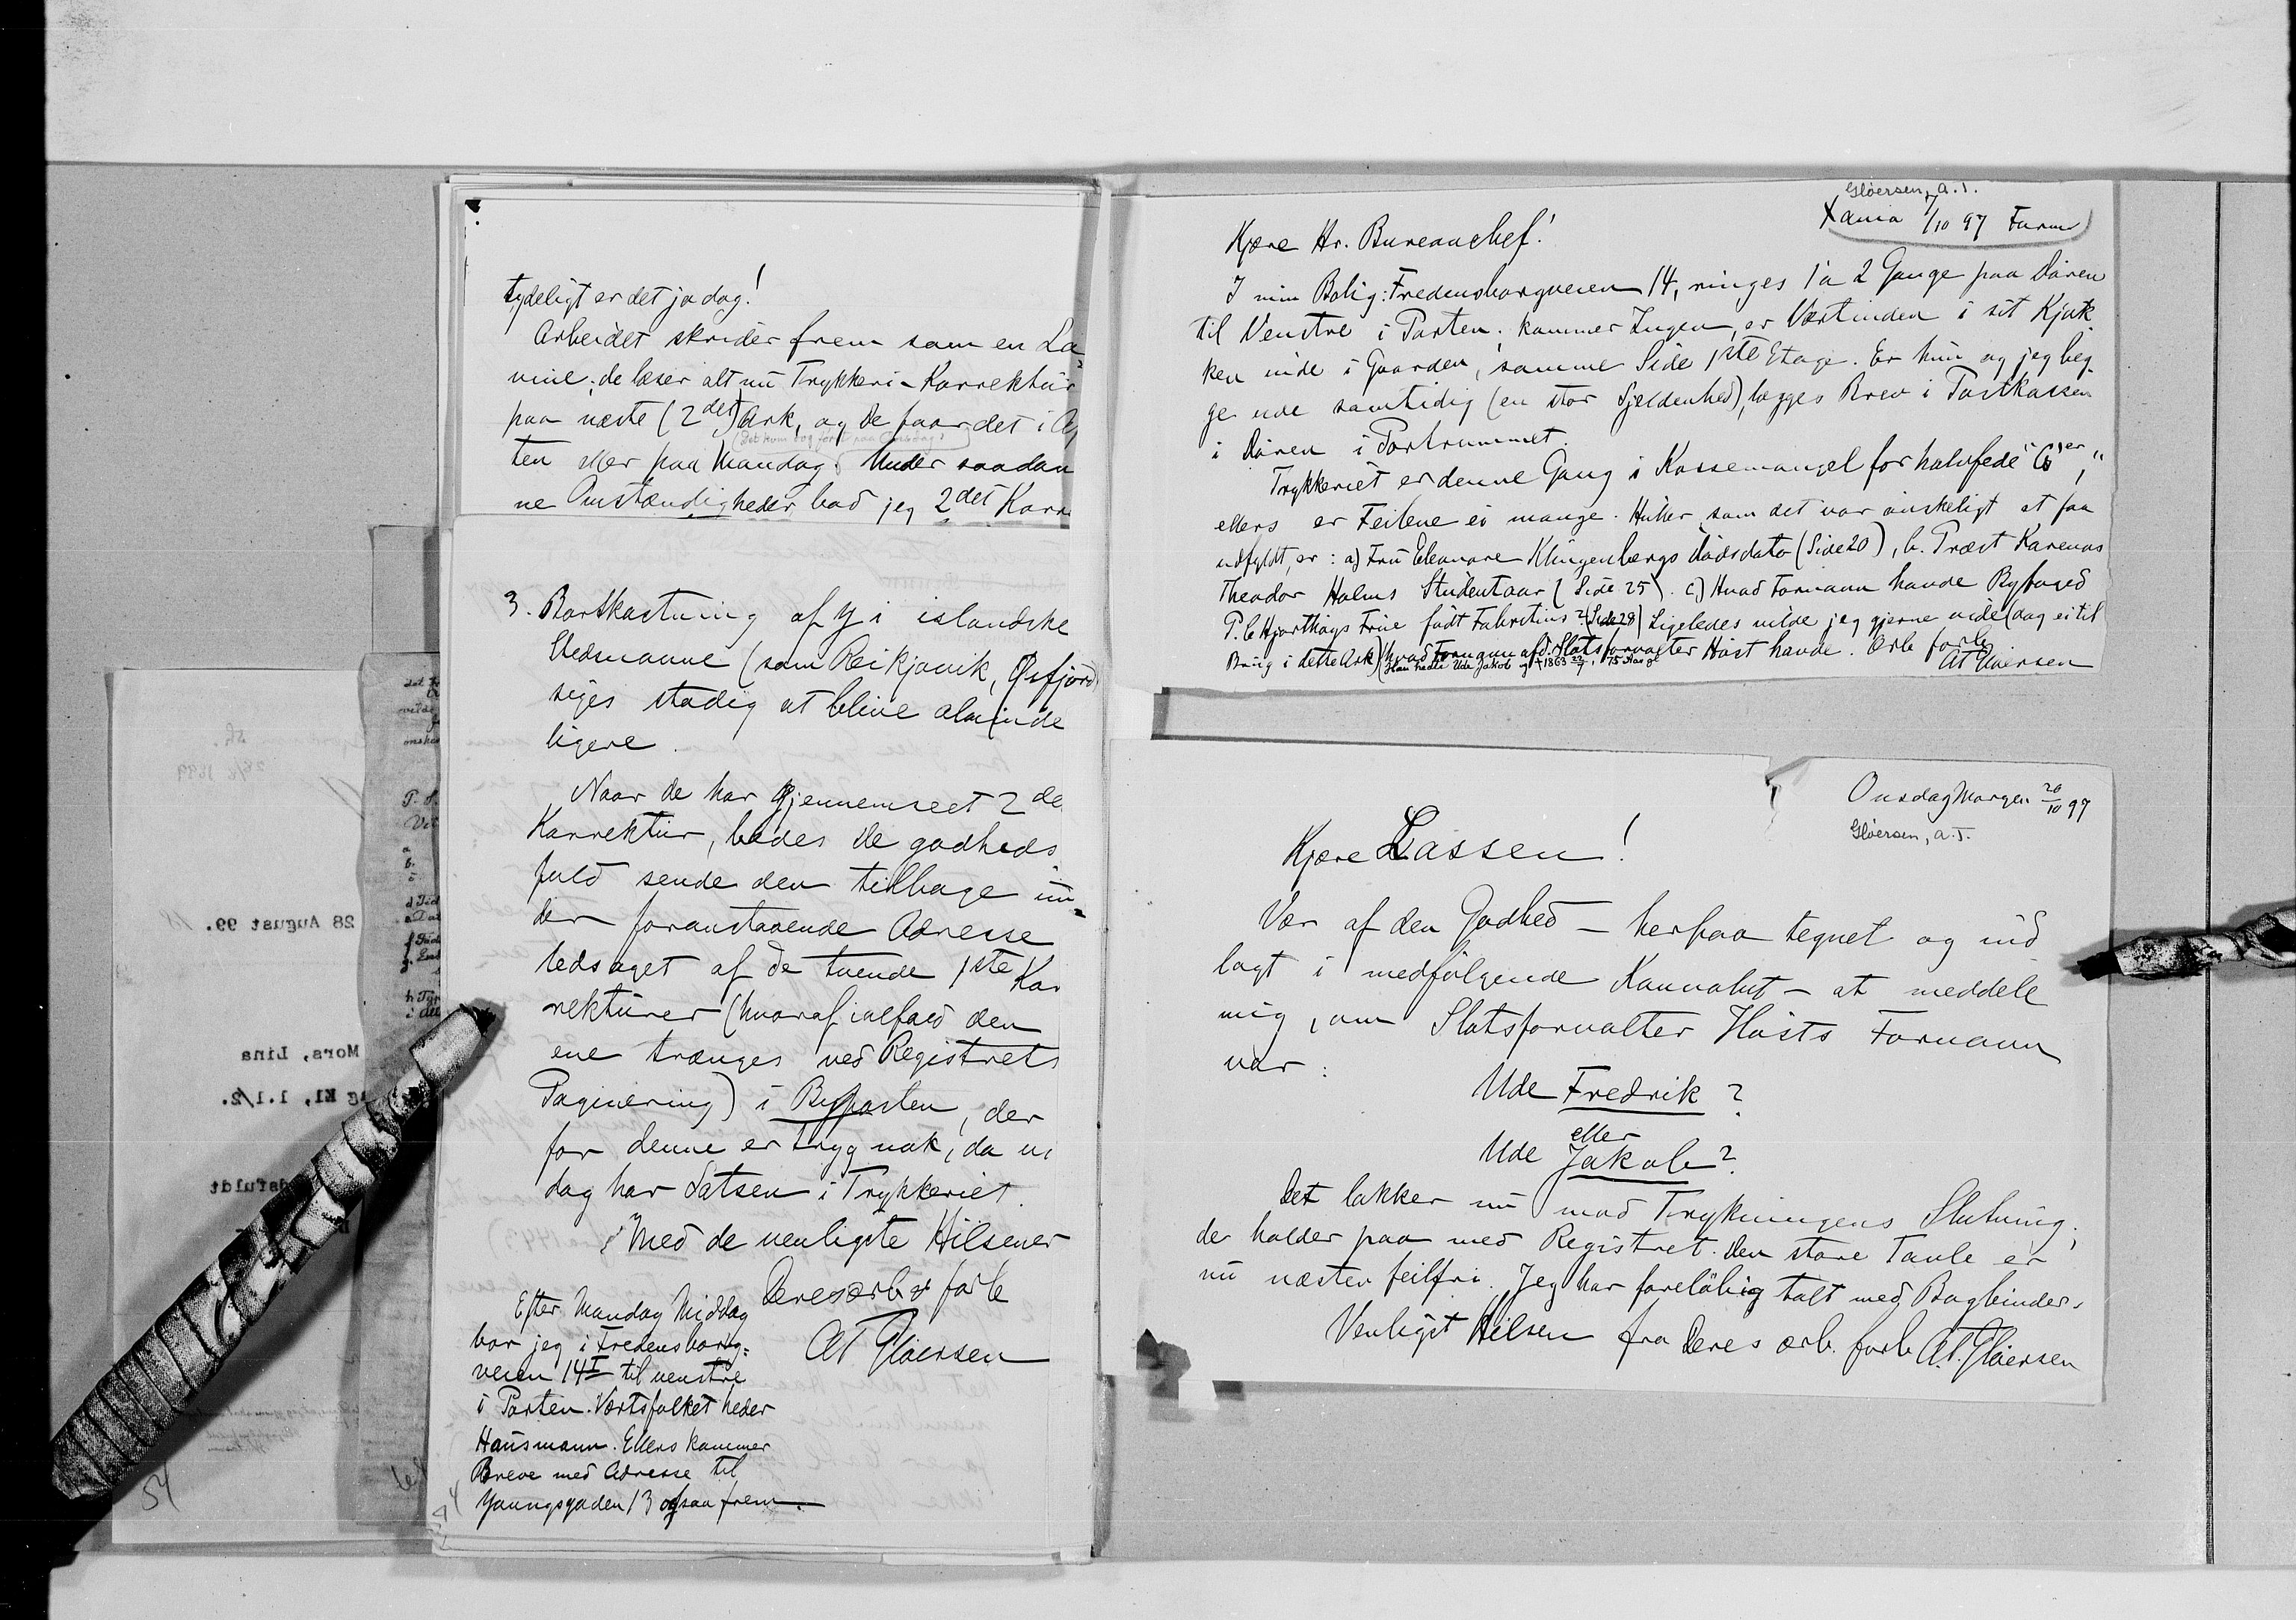 tydeligt er det jo dog!
Arbeidet skrider frem som en La-
vine; de læser alt nu Trykkeri-Korrektur
paa næste (2det) Ark, og De faar det i Af
(Det kom dog først paa Onsdag)
ten eller paa Mandag. Under saadan
ne Omstændigheder bad jeg 2det Korr
3. Bortkastning af y i islandske
Stedsnavne (som Reikjavik, Øsfjord)
siges stadig at blive alminde
ligere.
Naar de har gjennemseet 2de
Korrektur, bedes De godheds
fuld sende den tilbage un-
der foranstaaende Adresse
ledsaget af de tvende 1ste Kor
rekturer (hvoraf ialfald den
ene trænges ved Registrets
Paginering) i Byposten, der
for denne er tryg nok, da vi
dog har Satsen i Trykkeriet.
Med de venligste Hilsener
Deres ærb forb
AT Gløersen
Efter Mandag Middag
bor jeg i Fredensborg-
veien 14 I til venstre
i Porten. Værtsfolket heder
Hausmann. Ellers kommer
Breve med Adresse til
Youngsgaden 13 ogsaa frem.
54
28 August 99.
Mors, Lina
Kl, 1.1/2.
Gløersen, A.T.
Xania 7/10 97 Form
Kjære Hr. Bureauchef!
I min Bolig: Fredensborgveien 14, ringes 1 a 2 Gange paa Døren
til Venstre i Porten; kommer Ingen, er Værtinden i sit Kjøk
ken inde i Gaarden, samme Side 1ste Etage. Er hun og jeg beg-
ge ude samtidig (en stor Sjeldenhed), lægges Brev i Postkassen
i Døren i Portrummet.
Trykkeriet er denne Gang i Kassemangel for halvfede "G"er,
ellers er Feilene ei mange. Huller, som det var ønskeligt at faa
udfyldt, er: a) Fru Eleonore Klingenbergs Dødsdato (Side 20), b. Præst Karenus
Theodor Holms Studentaar (Side 25). c.) Hvad Fornavn havde Byfoged
P. C Hjorthøys Frue født Fabritius? (Side 28) Ligeledes vilde jeg gjerne vide (dog ei til
Brug i dette Ark) hvad Fornavn afd. Slotsforvalter Høst havde. Ærb forb
(Han hedte Ude Jakob og † 1863 22/7, 75 Aar gl
AT Gløersen
Onsdag Morgen 20/10 97
Gløersen, A.T.
Kjære Lassen!
Vær af den Godhed – herpaa tegnet og ind
lagt i medfølgende Konvolut – at meddele
mig, om Slotsforvalter Høsts Fornavn
var:
Ude Fredrik?
eller
Ude Jakob?
Det lakker nu mod Trykningens Slutning;
de holder paa med Registret. Den store Tavle er
nu næsten feilfri. Jeg har foreløbig talt med Bogbinder.
Venligst Hilsen fra Deres ærb. forb. A.T. Gløersen